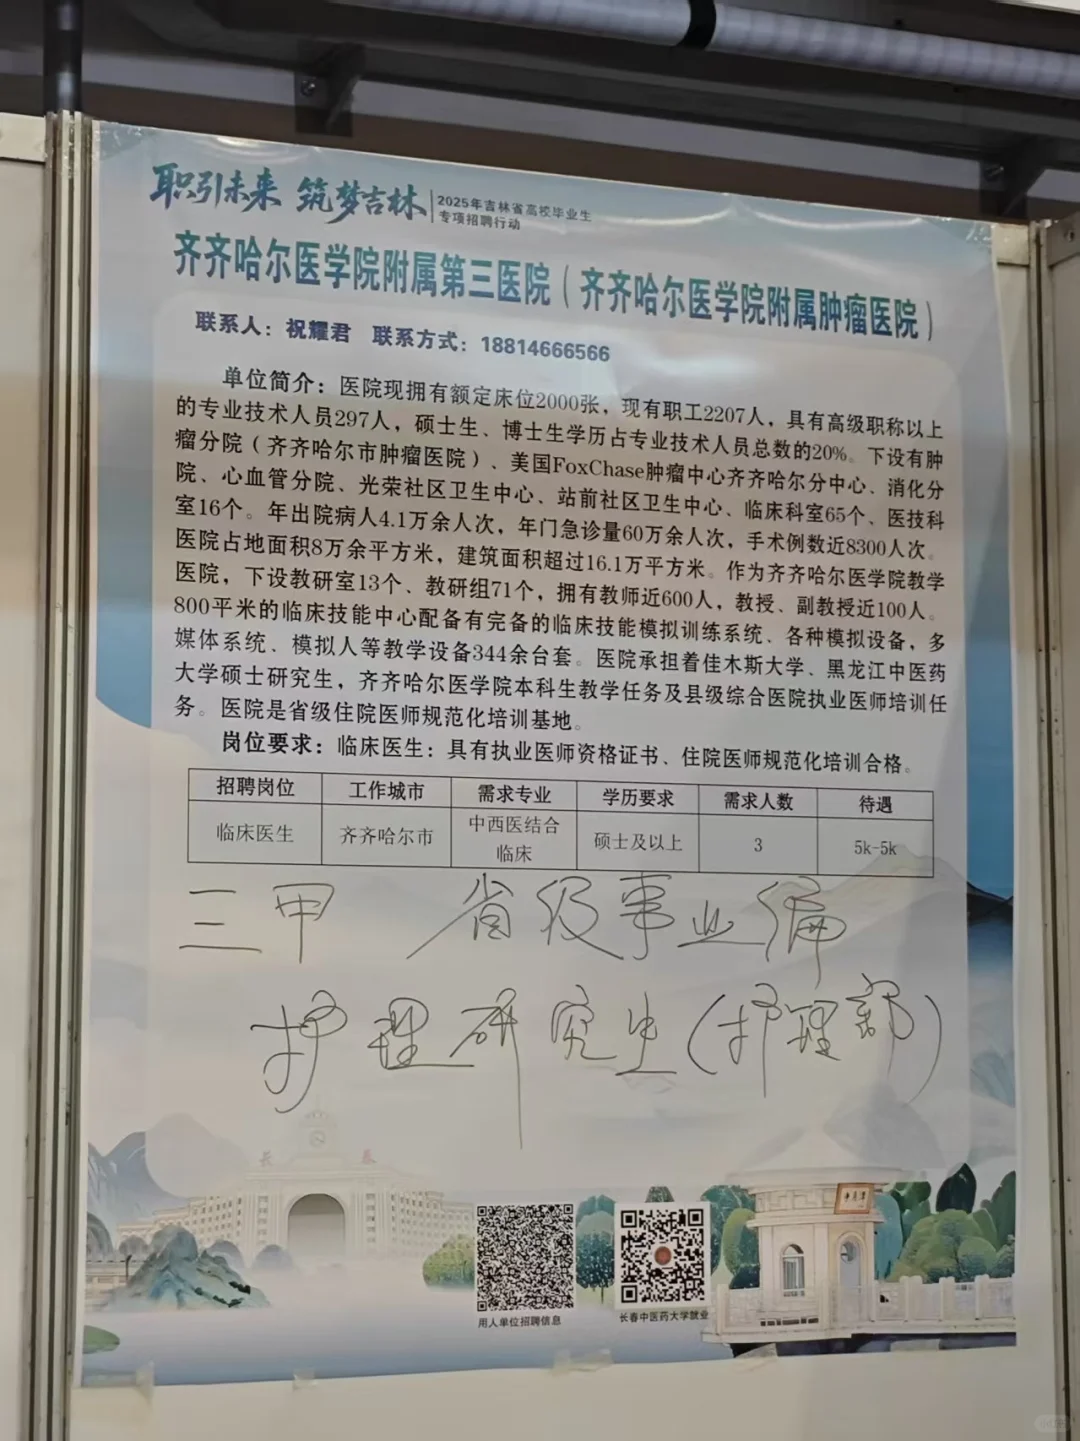 职引未来 筑梦吉林
2025年吉林省高校毕业生
专项招聘行动
齐齐哈尔医学院附属第三医院（齐齐哈尔医学院附属肿瘤医院）
联系人：祝耀君 联系方式：18814666566
单位简介：医院现拥有额定床位2000张，现有职工2207人，具有高级职称以上
的专业技术人员297人，硕士生、博士生学历占专业技术人员总数的20%。下设有肿
瘤分院（齐齐哈尔市肿瘤医院）、美国FoxChase肿瘤中心齐齐哈尔分中心、消化分
院、心血管分院、光荣社区卫生中心、站前社区卫生中心、临床科室65个、医技科
室16个。年出院病人4.1万余人次，年门急诊量60万余人次，手术例数近8300人次。
医院占地面积8万余平方米，建筑面积超过16.1万平方米。作为齐齐哈尔医学院教学
医院，下设教研室13个、教研组71个，拥有教师近600人，教授、副教授近100人。
800平米的临床技能中心配备有完备的临床技能模拟训练系统、各种模拟设备，多
媒体系统、模拟人等教学设备344余台套。医院承担着佳木斯大学、黑龙江中医药
大学硕士研究生，齐齐哈尔医学院本科生教学任务及县级综合医院执业医师培训任
务。医院是省级住院医师规范化培训基地。
岗位要求：临床医生：具有执业医师资格证书、住院医师规范化培训合格。
招聘岗位 工作城市 需求专业 学历要求 需求人数 待遇
临床医生 齐齐哈尔市 中西医结合临床 硕士及以上 3 5k-5k
三甲 省级事业编
护理研究生（护理部）
长春
用人单位招聘信息 长春中医药大学就业